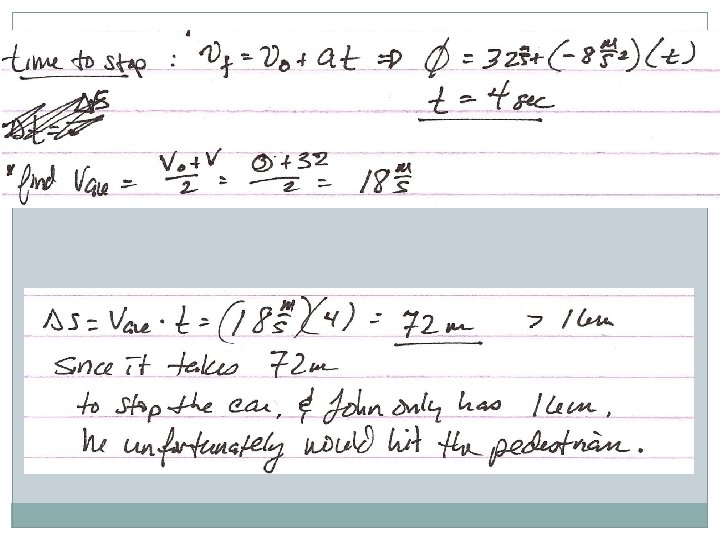 time to stop : v_f = v_0 + at ⇒ ∅ = 32 m/s + (-8 m/s²)(t)
t = 4 sec
* find V_ave = (V_0 + V)/2 = (0 + 32)/2 = 18 m/s
ΔS = V_ave · t = (18 m/s)(4) = 72 m > 16m
since it takes 72m
to stop the car, & John only has 16m,
he unfortunately would hit the pedestrian.